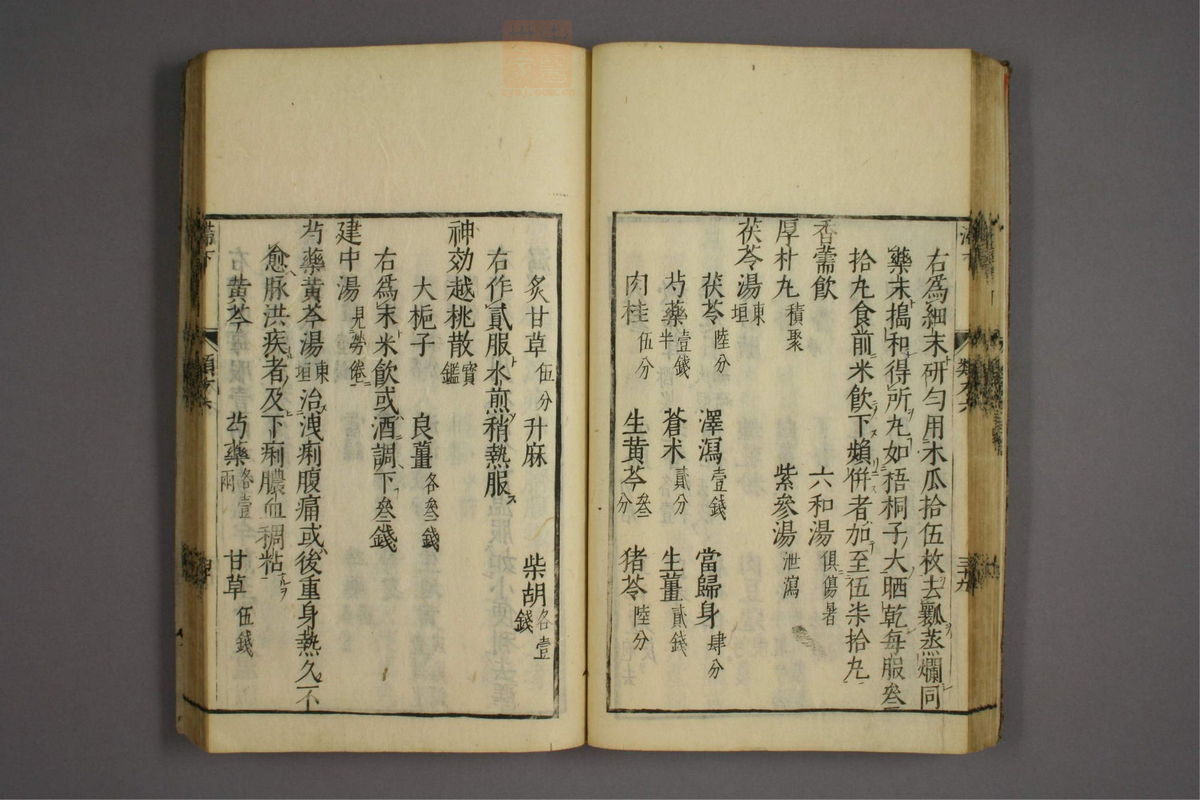 右爲細末研勻用木瓜拾伍枚去瓤蒸爛同
藥末搗和得所丸如梧桐子大晒乾每服叁
拾丸食前米飲下頻併者加至伍柒拾丸
香薷飲 六和湯俱傷暑
厚朴丸積聚 紫參湯泄瀉
茯苓湯東垣
茯苓陸分 澤瀉壹錢 當歸身肆分
芍藥壹錢半 蒼朮貳分 生薑貳錢
肉桂伍分 生黃芩叁分 猪苓陸分
炙甘草伍分 升麻 柴胡各壹錢
右作貳服水煎稍熱服
神効越桃散寳鑑
大梔子 良薑各叁錢
右爲末米飲或酒調下叁錢
建中湯見勞倦
芍藥黃芩湯東垣治洩痢腹痛或後重身熱久不
愈脉洪疾者及下痢膿血稠粘
黃芩 芍藥各壹兩 甘草伍錢